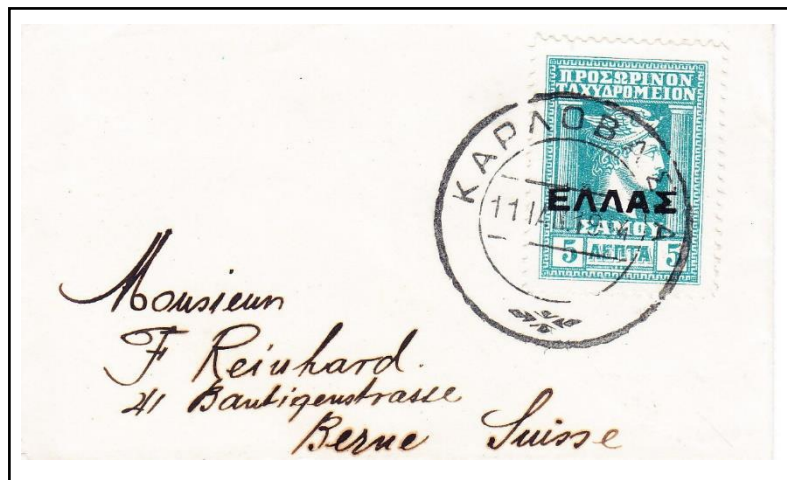 ΠΡΟΣΩΡΙΝΟΝ
ΤΑΧΥΔΡΟΜΕΙΟΝ
ΕΛΛΑΣ
ΣΑΜΟΥ
5 ΛΕΠΤΑ 5
ΚΑΡΛΟΒΑΣΙΑ
Monsieur
F Reinhard.
41 Bantigenstrasse
Berne Suisse